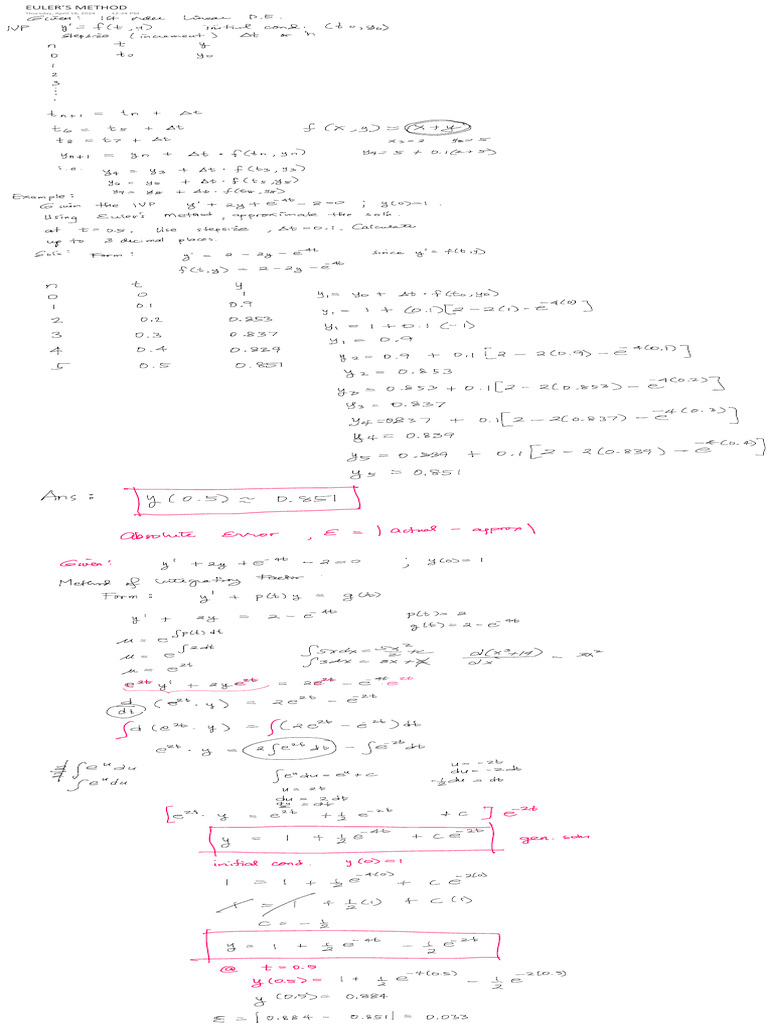 EULER'S METHOD
Thursday, April 18, 2024 12:24 PM
Given: 1st order Linear D.E.
IVP y' = f(t, y) initial cond. (t0, y0)
stepsize (increment) Δt or h
n t y
0 t0 y0
1
2
3
tn+1 = tn + Δt
t6 = t5 + Δt f(x, y) = x + y
t8 = t7 + Δt x3 = 2 y3 = 5
yn+1 = yn + Δt · f(tn, yn) y4 = 5 + 0.1(2+5)
i.e. y4 = y3 + Δt · f(t3, y3)
y6 = y5 + Δt · f(t5, y5)
y9 = y8 + Δt · f(t8, y8)
Example:
Given the IVP y' + 2y + e^-4t - 2 = 0 ; y(0) = 1.
Using Euler's Method, approximate the soln.
at t = 0.5, Use stepsize, Δt = 0.1. Calculate
up to 3 decimal places.
Soln: Form: y' = 2 - 2y - e^-4t since y' = f(t, y)
f(t, y) = 2 - 2y - e^-4t
n t y
0 0 1 y1 = y0 + Δt · f(t0, y0)
1 0.1 0.9 y1 = 1 + (0.1)[2 - 2(1) - e^-4(0)]
2 0.2 0.853 y1 = 1 + 0.1(-1)
3 0.3 0.837 y1 = 0.9
4 0.4 0.839 y2 = 0.9 + 0.1[2 - 2(0.9) - e^-4(0.1)]
5 0.5 0.851 y2 = 0.853
y3 = 0.853 + 0.1[2 - 2(0.853) - e^-4(0.2)]
y3 = 0.837
y4 = 0.837 + 0.1[2 - 2(0.837) - e^-4(0.3)]
y4 = 0.839
y5 = 0.839 + 0.1[2 - 2(0.839) - e^-4(0.4)]
y5 = 0.851
Ans: y(0.5) ≈ 0.851
Absolute Error, E = |actual - approx|
Given: y' + 2y + e^-4t - 2 = 0 ; y(0) = 1
Method of Integrating Factor
Form: y' + p(t)y = g(t)
y' + 2y = 2 - e^-4t p(t) = 2
u = e^∫p(t)dt g(t) = 2 - e^-4t
u = e^∫2dt ∫5xdx = 5x²/2 + c d(x³+19)/dx = 3x²
u = e^2t ∫3dx = 3x + x
e^2t y' + 2y e^2t = 2e^2t - e^-4t e^2t
d/dt (e^2t · y) = 2e^2t - e^-2t
∫d(e^2t · y) = ∫(2e^2t - e^-2t)dt
e^2t · y = 2∫e^2t dt - ∫e^-2t dt
∫e^u du u = -2t
∫e^u du ∫e^u du = e^u + c du = -2dt
u = 2t -1/2 du = dt
du = 2dt
du/2 = dt
[e^2t · y = e^2t + 1/2 e^-2t + c] e^-2t
y = 1 + 1/2 e^-4t + c e^-2t gen. soln
initial cond. y(0) = 1
1 = 1 + 1/2 e^-4(0) + c e^-2(0)
1 = 1 + 1/2(1) + c(1)
c = -1/2
y = 1 + 1/2 e^-4t - 1/2 e^-2t
@ t = 0.5
y(0.5) = 1 + 1/2 e^-4(0.5) - 1/2 e^-2(0.5)
y(0.5) = 0.884
E = |0.884 - 0.851| = 0.033